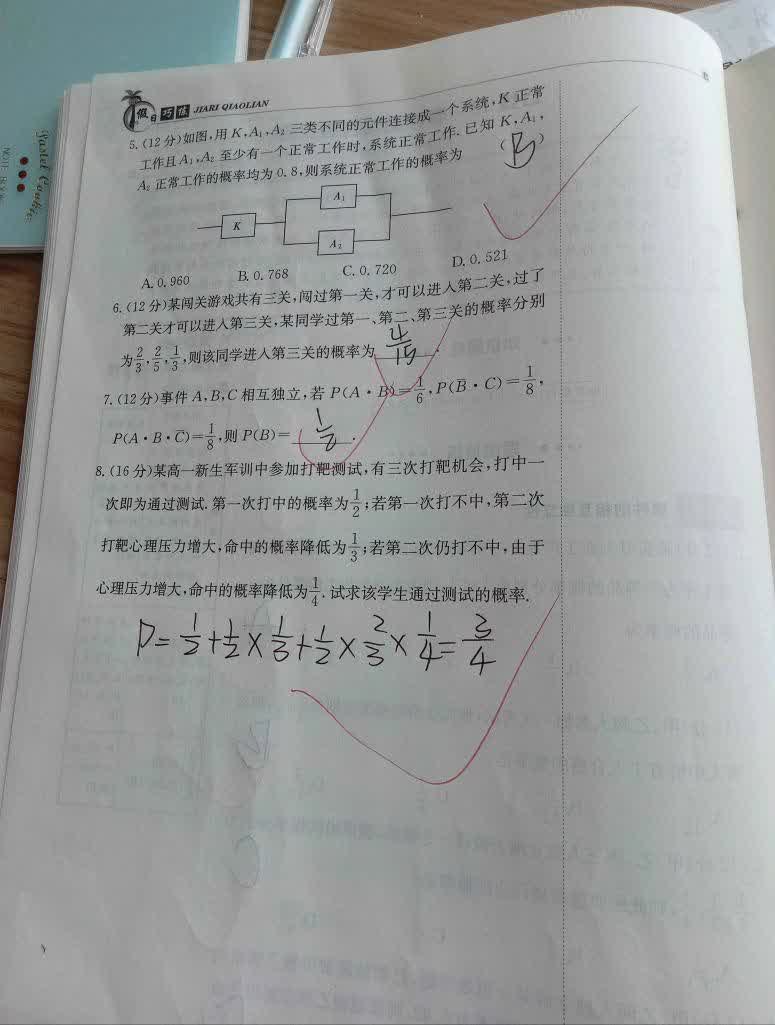 假日 巧练 JIARI QIAOLIAN
5.(12分)如图,用 K,A₁,A₂ 三类不同的元件连接成一个系统,K 正常
工作且 A₁,A₂ 至少有一个正常工作时,系统正常工作.已知 K,A₁,
A₂ 正常工作的概率均为 0.8,则系统正常工作的概率为 ( B )
A₁
K
A₂
A. 0.960 B. 0.768 C. 0.720 D. 0.521
6.(12分)某闯关游戏共有三关,闯过第一关,才可以进入第二关,过了
第二关才可以进入第三关,某同学过第一、第二、第三关的概率分别
为 2/3, 2/5, 1/3,则该同学进入第三关的概率为 4/15 .
7.(12分)事件 A,B,C 相互独立,若 P(A·B)=1/6,P(B̅·C)=1/8,
P(A·B·C̅)=1/8,则 P(B)= 1/2 .
8.(16分)某高一新生军训中参加打靶测试,有三次打靶机会,打中一
次即为通过测试.第一次打中的概率为1/2;若第一次打不中,第二次
打靶心理压力增大,命中的概率降低为1/3;若第二次仍打不中,由于
心理压力增大,命中的概率降低为1/4.试求该学生通过测试的概率.
P=1/2+1/2×1/3+1/2×2/3×1/4=3/4